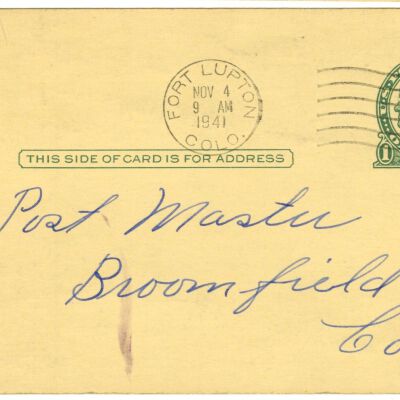 FORT LUPTON
NOV 4
9 AM
1941
COLO.
1
THIS SIDE OF CARD IS FOR ADDRESS
Post Master
Broomfield
Co